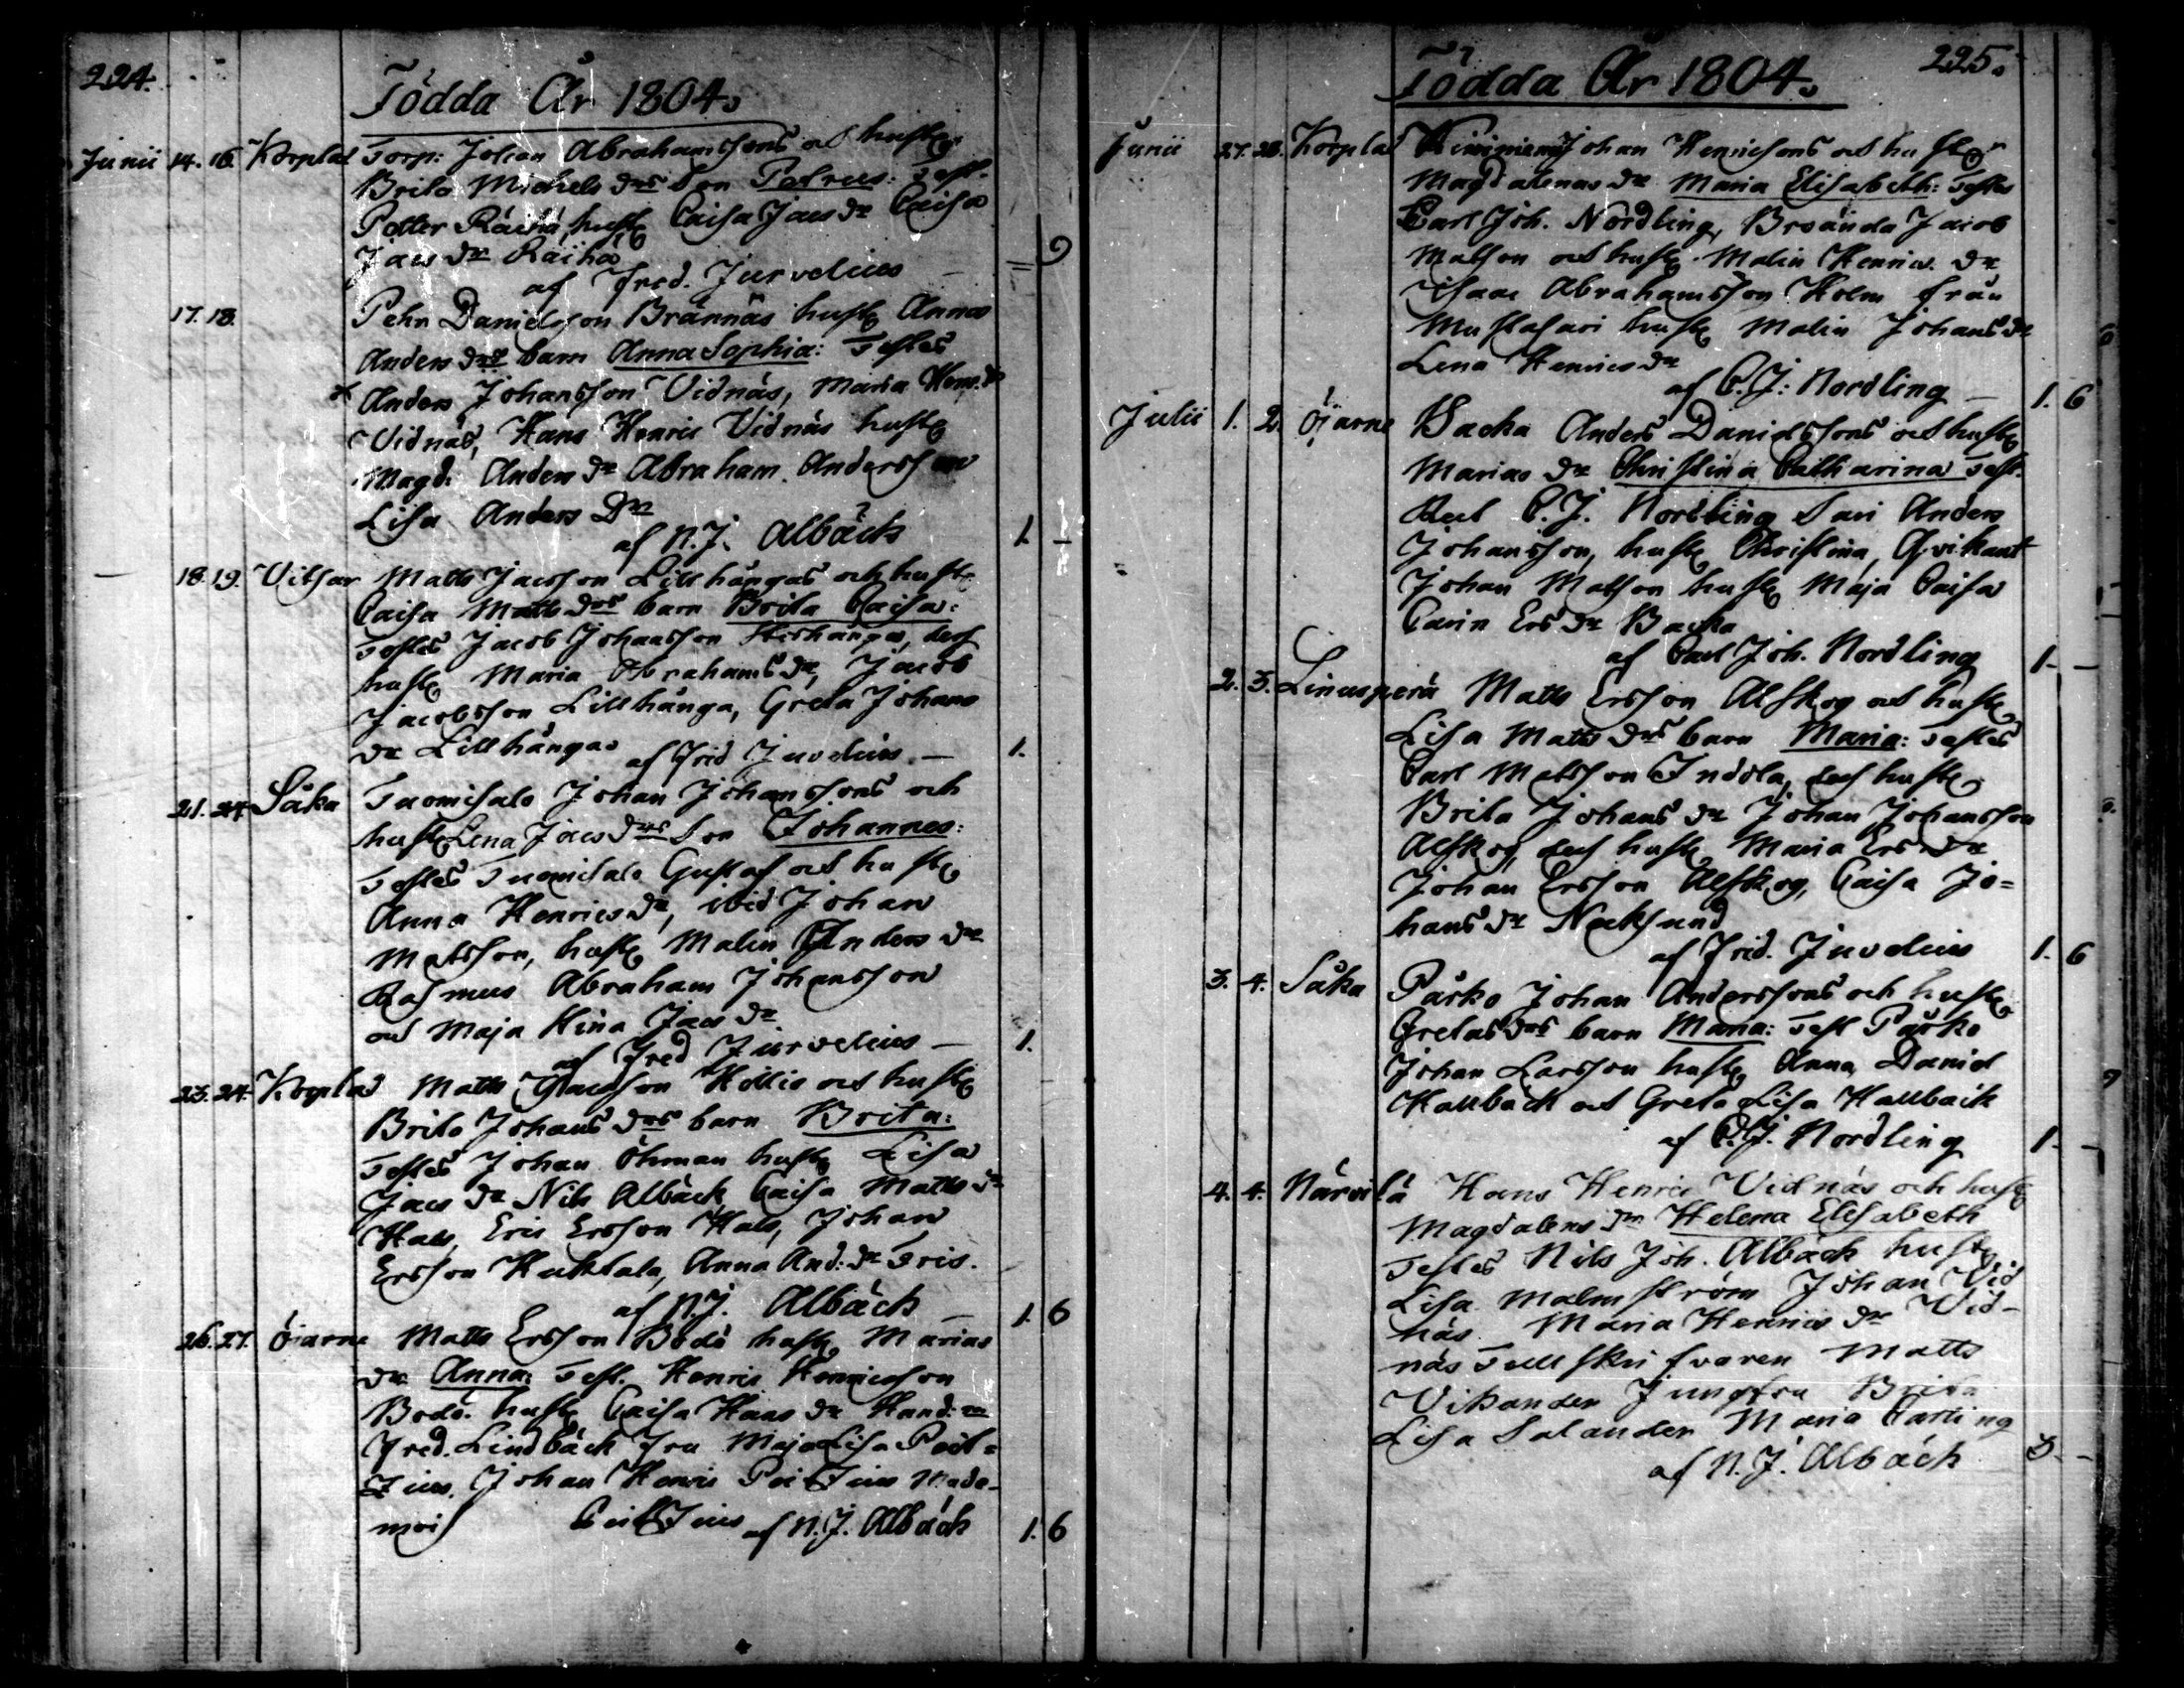 224.
Födda År 1804.
Junii 14. 16. Korplax Torp: Johan Abrahamssons och hustr
Brita Michels drs Son Petrus: Test.
Petter Räihä, hustr Caisa Jacs dr Caisa
Jacs dr Räihä
af Fred. Jurvelius — = 9
17. 18. Pehr Danielsson Brännäs hustr Annas
Anders drs barn Anna Sophia: Testes
x Anders Johansson Vidnäs, Maria Henr. dr
Vidnäs, Hans Henric Vidnäs hustr
Magd: Anders dr Abraham Andersson
Lisa Anders Dr
af N. J. Albäck 1. —
18. 19. Vitsar Matts Jacsson Lillhångas och hustr
Caisa Matts drs barn Brita Caisa:
Testes Jacob Johansson Storhånga, dess
hustr Maria Abrahams dr, Jacob
Jacobsson Lillhånga, Greta Johans
dr Lillhångas af Frid Juvelius — 1.
21. 24. Såka Tuomisalo Johan Johanssons och
hustr Lena Jacs drs Son Johannes:
Testes Tuomisalo Gustaf och hustr
Anna Henrics dr, ibid Johan
Matsson, hustr Malin Anders dr
Rasmus Abraham Johansson
och Maja Stina Jacs dr
af Fred Jurvelius — 1.
23. 24. Korplax Matts Jacsson och hustr
Brita Johans drs barn Brita:
Testes Johan Öhman hustr Lisa
Jacs dr Nils Albäck Caisa Matts dr
Hals, Eric Ersson Hals, Johan
Ersson Huktala, Anna And: dr Fris.
af N. J. Albäck — 1. 6
26. 27. Öjarne Matts Ersson Bodö hustr Marias
dr Anna: Test. Henric Henricsson
Bodö. hustr Caisa Hans dr Hand:
Fred. Lindbäck Fru Maja Lisa
Johan Henric Made-
mois af N. J. Albäck 1. 6
225.
Födda År 1804.
Junii 27. 28. Korplax Kiviniemi Johan Henricsons och hustr
Magdalenas dr Maria Elisabeth: Testes
Carl Joh. Nordling, Broända Jacob
Matson och hustr Malin Henrics dr
Isaac Abrahamsson Holm från
Mustasari hustr Malin Johans dr
Lena Henrics dr
af C. J: Nordling — 1. 6
Julii 1. 2. Öjarne Backa Anders Danielssons och hustr
Marias dr Christina Catharina Test.
C. J. Nordling Sari Anders
Johansson, hustr Christina, Qvikant
Johan Matson hustr Maja Caisa
Carin Ers dr Backa
af Carl Joh. Nordling 1. —
2. 3. Linusperä Matts Ersson Alskog och hustr
Lisa Matts drs barn Maria: Testes
Carl Matsson Indola, dess hustr
Brita Johans dr Johan Johansson
Alskog, dess hustr Maria Ers dr
Johan Ersson Alskog, Caisa Jo=
hans dr Neuksund
af Frid. Juvelius 1. 6
3. 4. Såka Påsko Johan Anderssons och hustr
Gretas drs barn Maria: Test Påsko
Johan Larsson hustr Anna, David
Hallbäck och Greta Lisa Hallbäck
af C. J. Nordling 1. —
4. 4. Närvilä Hans Henric Vidnäs och hustr
Magdalens dr Helena Elisabeth
Testes Nils Joh. Albäck hustr
Lisa Malmström Johan Vid
näs Maria Henrics dr Vid-
näs Tullskrifvaren Matts
Vikander Jungfru Brita
Lisa Salander Maria Carling
af N. J. Albäck 3. —